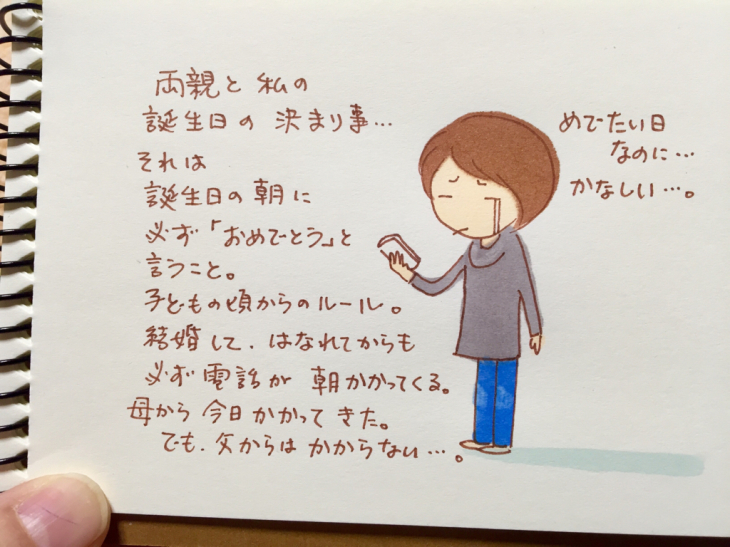 両親と 私の
誕生日の 決まり事…
それは
誕生日の朝に
必ず「おめでとう」と
言うこと。
子どもの頃からのルール。
結婚して、はなれてからも
必ず電話が 朝かかってくる。
母から 今日かかって きた。
でも、父からは かからない…。
めでたい日
なのに…
かなしい…。